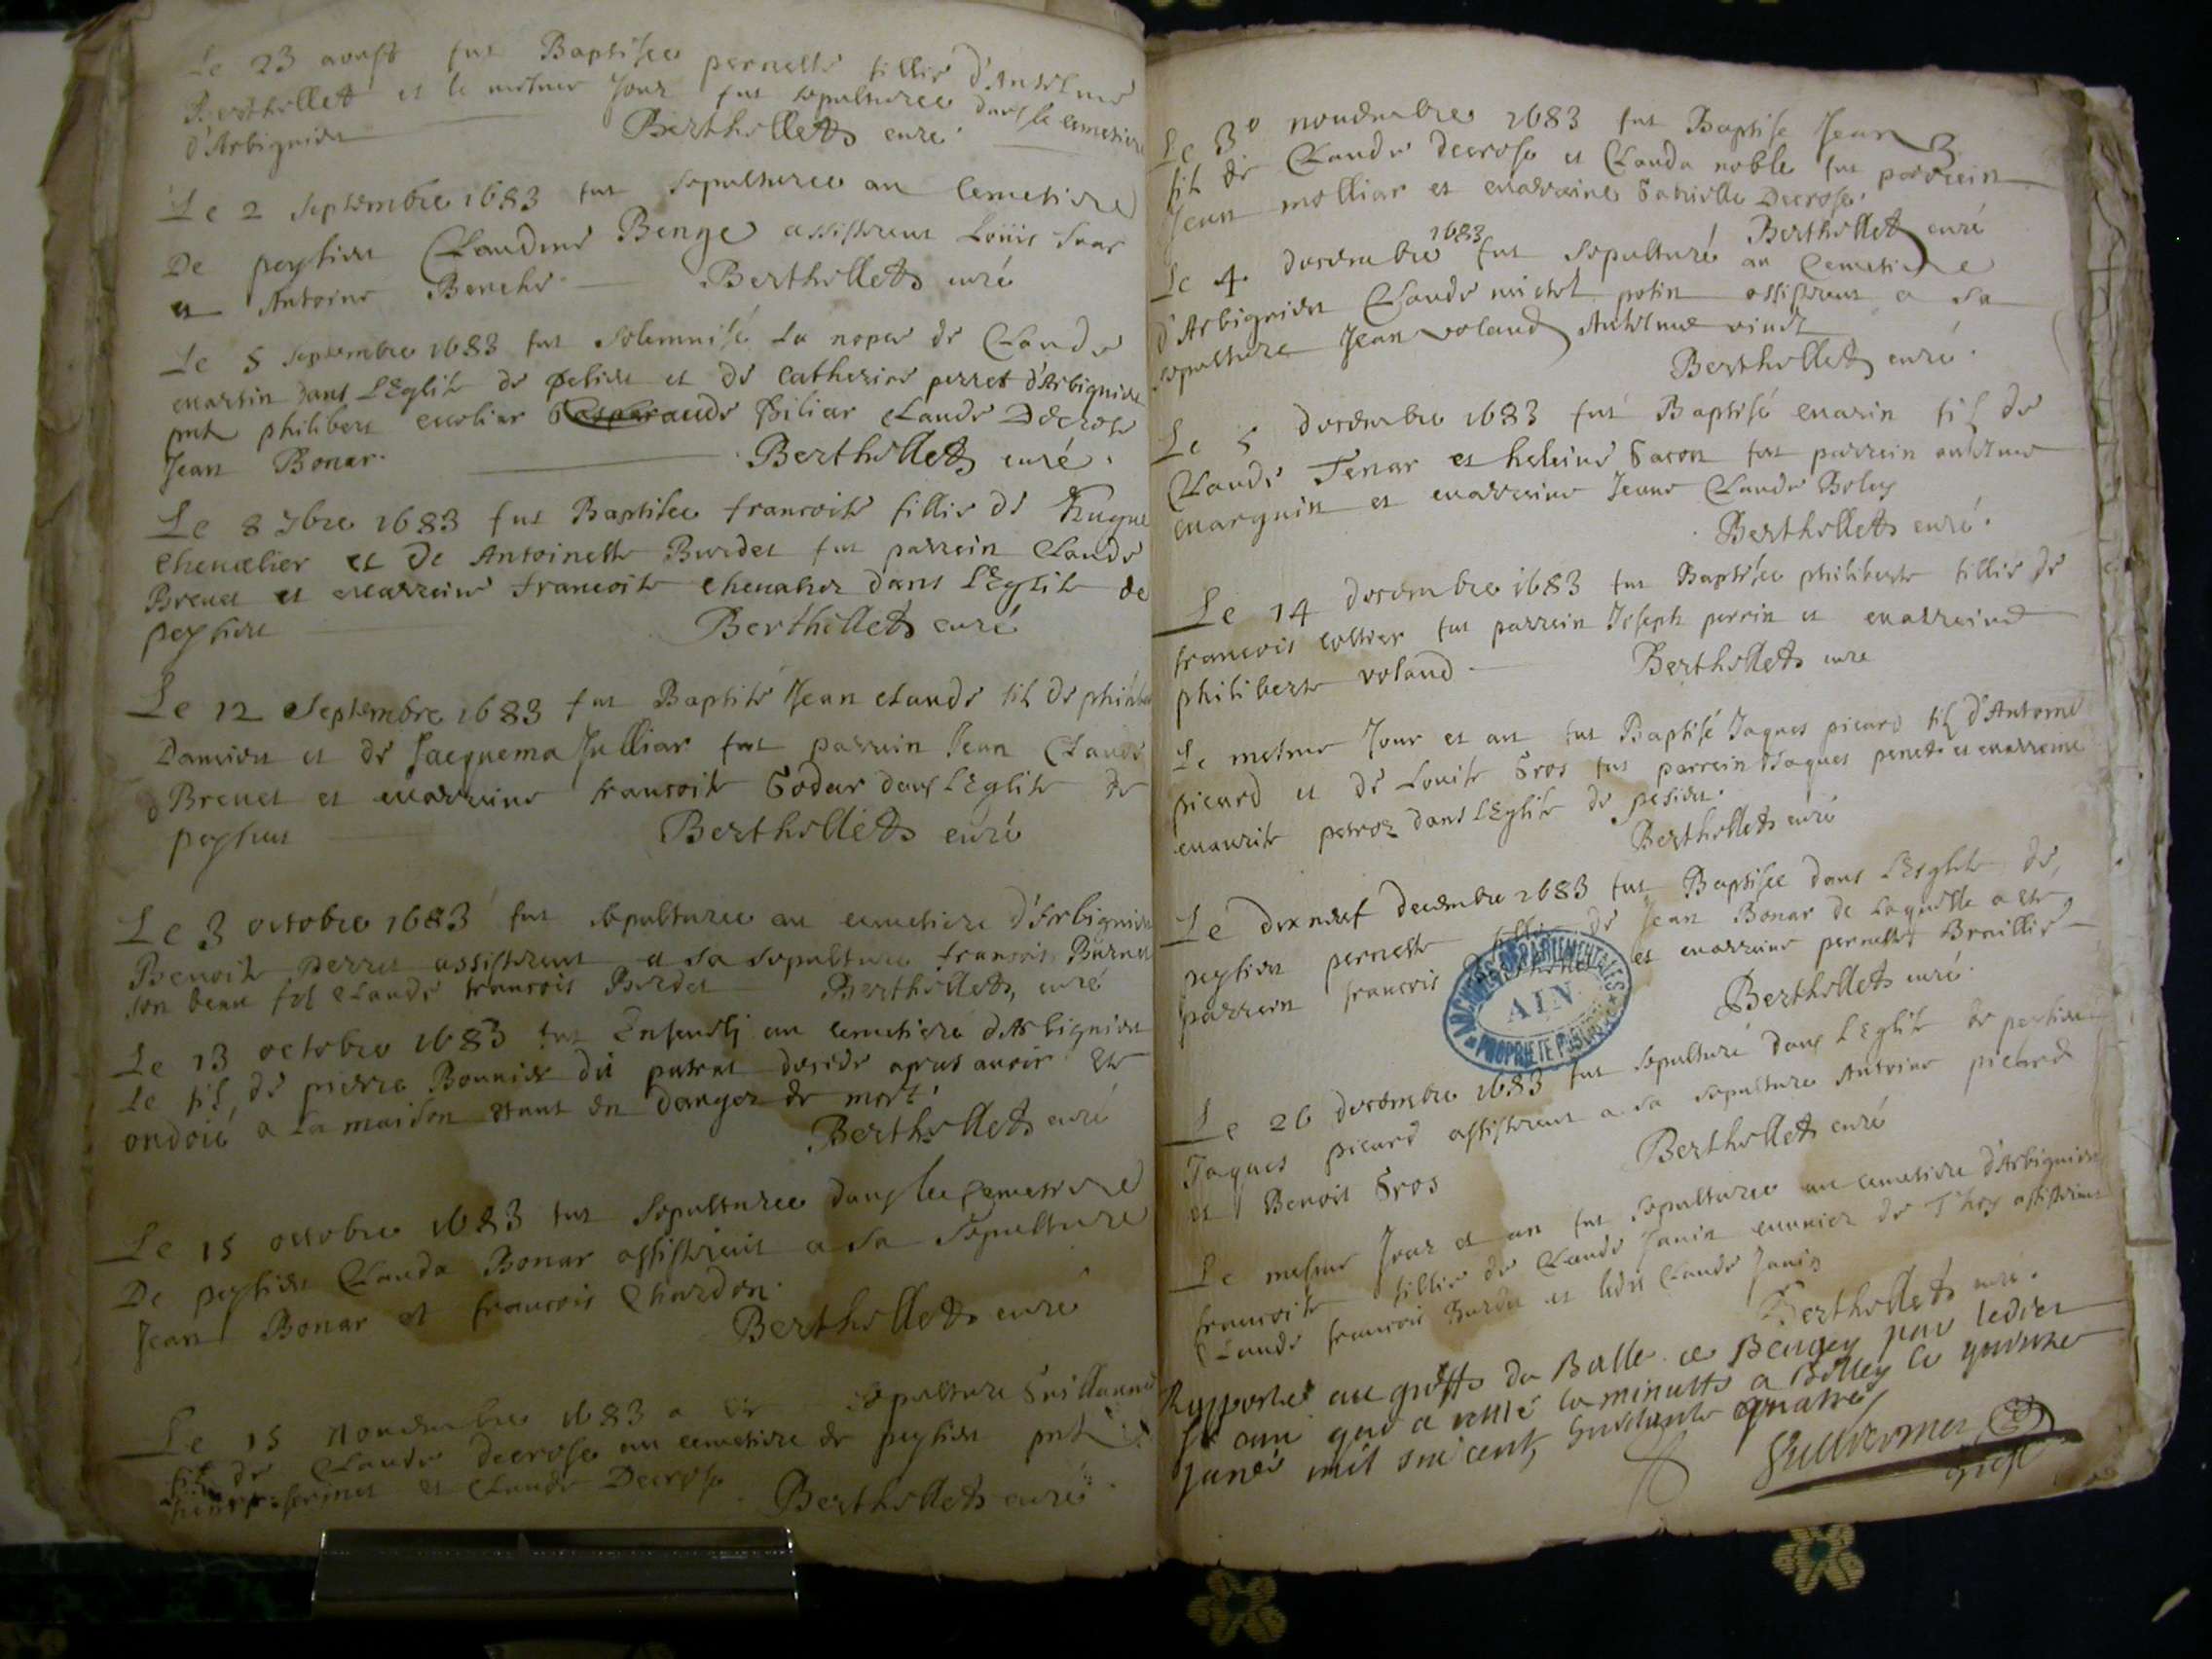 Le 23 aoust fut Baptisee pernette fillie d'Antelme
Berthellet et le mesme Jour fut sepulturee dans le cemetiere
d'Arbignieu Berthellet curé
Le 2 septembre 1683 fut sepulturee au Cemetiere
De peysieu Claudine Benge assisterent Loüis
et Antoine Berthellet curé
Le 5 septembre 1683 fut solemnisé La nopce de Claude
martin dans L'Eglise de pesieu et de Catherine perret d'Arbignieu
pnt philibert Claude Decrose
Jean Bonar Berthellet curé
Le 8 7bre 1683 fut Baptisee francoise fillie de Hugue
Chevalier et De Antoinette Burdet fut parrein Claude
Brevet et marreine francoise chevalier dans L'Eglise de
peysieu Berthellet curé
Le 12 Septembre 1683 fut Baptisé Jean claude fil de
Damien et de Jacquema Julliar fut parrein Jean Claude
Brevet et marreine francoise Godar dans L'Eglise de
peysieu Berthellet curé
Le 3 octobre 1683 fut sepulturee au cemetiere d'Arbignieu
Benoite perret assisterent a sa sepulture francois Burnet
son beau fil claude francois Burdet Berthellet, curé
Le 13 octobre 1683 fut Ensevely au cemetiere d'Arbignieu
Le fil, de pierre Bonnier dit decede apres avoir Ete
ondoié a La maison etant en danger de mort
Berthellet curé
Le 15 octobre 1683 fut sepulturee dans le cemetiere
De peysieu Clauda Bonar assisterent a sa sepulture
Jean Bonar et francois Chardon
Berthellet curé
Le 15 novembre 1683 a Ete sepulture Guillaume
fil de Claude decrose au cemetiere de peysieu pnt
et Claude Decrose Berthellet curé
Le 3e novembre 1683 fut Baptise Jean
fil de Claude decrose et Clauda noble fut parrein
Jean molliar et marreine Decrose
Berthellet curé
Le 4 decembre 1683 fut sepulturé au Cemetiere
d'Arbignieu Claude michel potin assisterent a sa
sepulture Jean voland Anthelme
Berthellet curé
Le 5 decembre 1683 fut Baptisé marin fil de
Claude Tenar et heleine fut parrein anthelme
marguin et marreine Jeane Claude
Berthellet curé
Le 14 decembre 1683 fut Baptisee philiberte fillie de
francois fut parrein Joseph perrin et marreine
philiberte voland Berthellet cure
Le mesme Jour et an fut Baptisé Jaques picard fil d'Antoine
picard et de Louise Gros fut parrein Jaques et marreine
maurise dans L'Eglise de pesieu
Berthellet curé
Le dix neuf decembre 1683 fut Baptisee dans L'Eglise de
peysieu pernette fillie de Jean Bonar de Laquelle a ete
parrein francois et marreine pernette Braillie
Berthellet curé
ARCHIVES DEPARTEMENTALES
AIN
PROPRIETE PUBLIQUE
Le 26 decembre 1683 fut sepulturé dans L'Eglise de peysieu
Jaques picard assisterent a sa sepulture Antoine picard
et Benoit Gros Berthellet curé
Le mesme Jour et an fut sepulturee au cemetiere d'Arbignieu
francoise fillie de Claude Janin de assisterent
Claude francois Burdet et ledit Claude Janin
Berthellet cure
Rapporté au greffe du Balle de Beugey par ledict
Sr curé que a retiré la minutte a Belley le quinze
Janvier mil six cent, huictante quatre